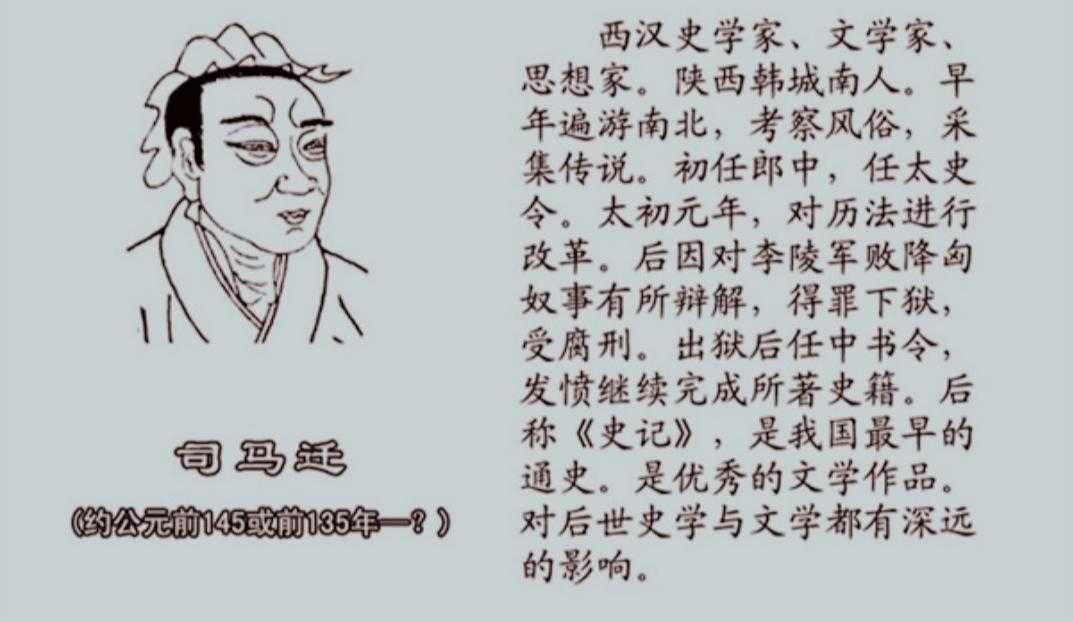 西汉史学家、文学家、
思想家。陕西韩城南人。早
年遍游南北，考察风俗，采
集传说。初任郎中，任太史
令。太初元年，对历法进行
改革。后因对李陵军败降匈
奴事有所辩解，得罪下狱，
受腐刑。出狱后任中书令，
发愤继续完成所著史籍。后
称《史记》，是我国最早的
通史。是优秀的文学作品。
对后世史学与文学都有深远
的影响。
司马迁
（约公元前145或前135年—？）